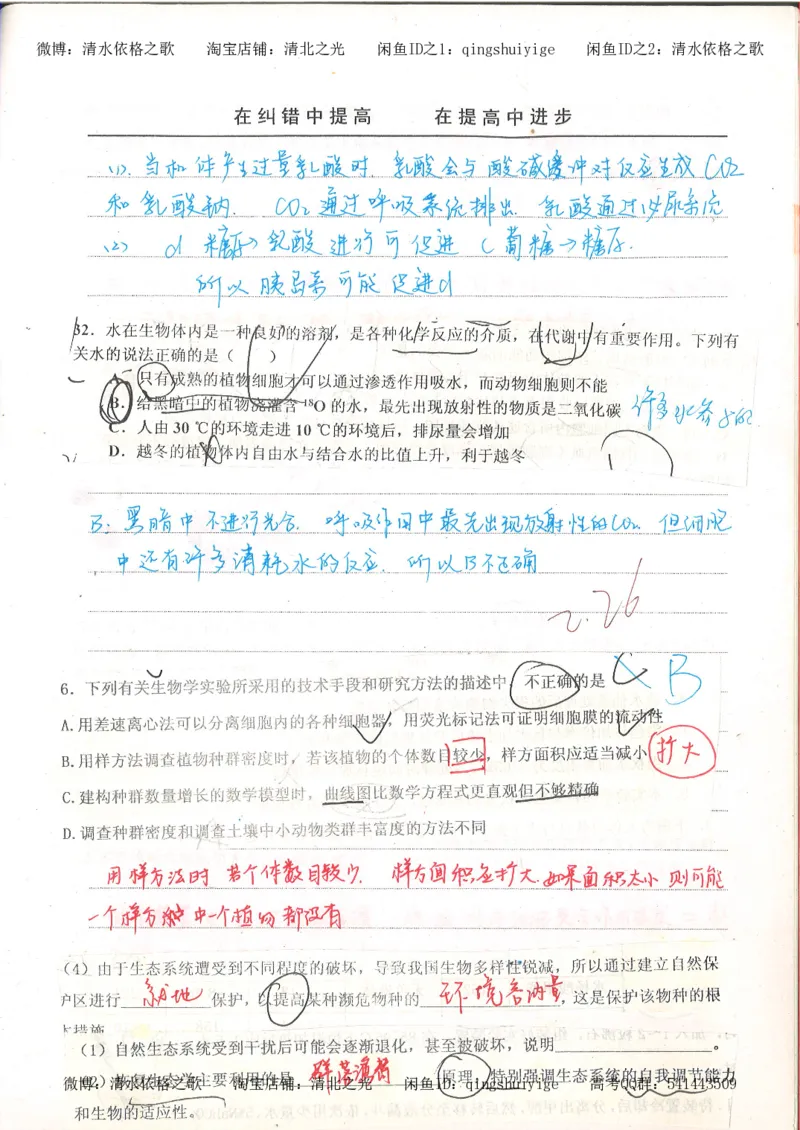 微博：清水依格之歌 淘宝店铺：清北之光 闲鱼ID之1：qingshuiyige 闲鱼ID之2：清水依格之歌
在纠错中提高 在提高中进步
(1). 当机体产生过量乳酸时. 乳酸会与酸碱缓冲对反应生成CO2
和乳酸钠. CO2通过呼吸系统排出. 乳酸通过泌尿系统
(2) d 糖原→乳酸 进行可促进 c 葡糖→糖原.
所以胰岛素可能促进d
32．水在生物体内是一种良好的溶剂，是各种化学反应的介质，在代谢中有重要作用。下列有
关水的说法正确的是（ ）
A．只有成熟的植物细胞才可以通过渗透作用吸水，而动物细胞则不能
B．给黑暗中的植物浇灌含18O的水，最先出现放射性的物质是二氧化碳 许多水参与的
C．人由30 ℃的环境走进10 ℃的环境后，排尿量会增加
D．越冬的植物体内自由水与结合水的比值上升，利于越冬
B: 黑暗中不进行光合. 呼吸作用中最先出现放射性的CO2. 但细胞
中还有许多消耗水的反应. 所以B不正确
2.26
6．下列有关生物学实验所采用的技术手段和研究方法的描述中，不正确的是 B
A.用差速离心法可以分离细胞内的各种细胞器，用荧光标记法可证明细胞膜的流动性
B.用样方法调查植物种群密度时，若该植物的个体数目较少，样方面积应适当减小 扩大
C.建构种群数量增长的数学模型时，曲线图比数学方程式更直观但不够精确
D.调查种群密度和调查土壤中小动物类群丰富度的方法不同
用样方法时 若个体数目较少. 样方面积应扩大.如果面积太小 则可能
一个样方中一个植物都没有
（4）由于生态系统遭受到不同程度的破坏，导致我国生物多样性锐减，所以通过建立自然保
护区进行 就地 保护，以提高某种濒危物种的 环境容纳量，这是保护该物种的根
本措施
（1）自然生态系统受到干扰后可能会逐渐退化，甚至被破坏，说明 。
（2）恢复生态学主要利用的是 群落演替 原理，特别强调生态系统的自我调节能力
微博：清水依格之歌 淘宝店铺：清北之光 闲鱼ID：qingshuiyige 高考QQ群：541443509
和生物的适应性。